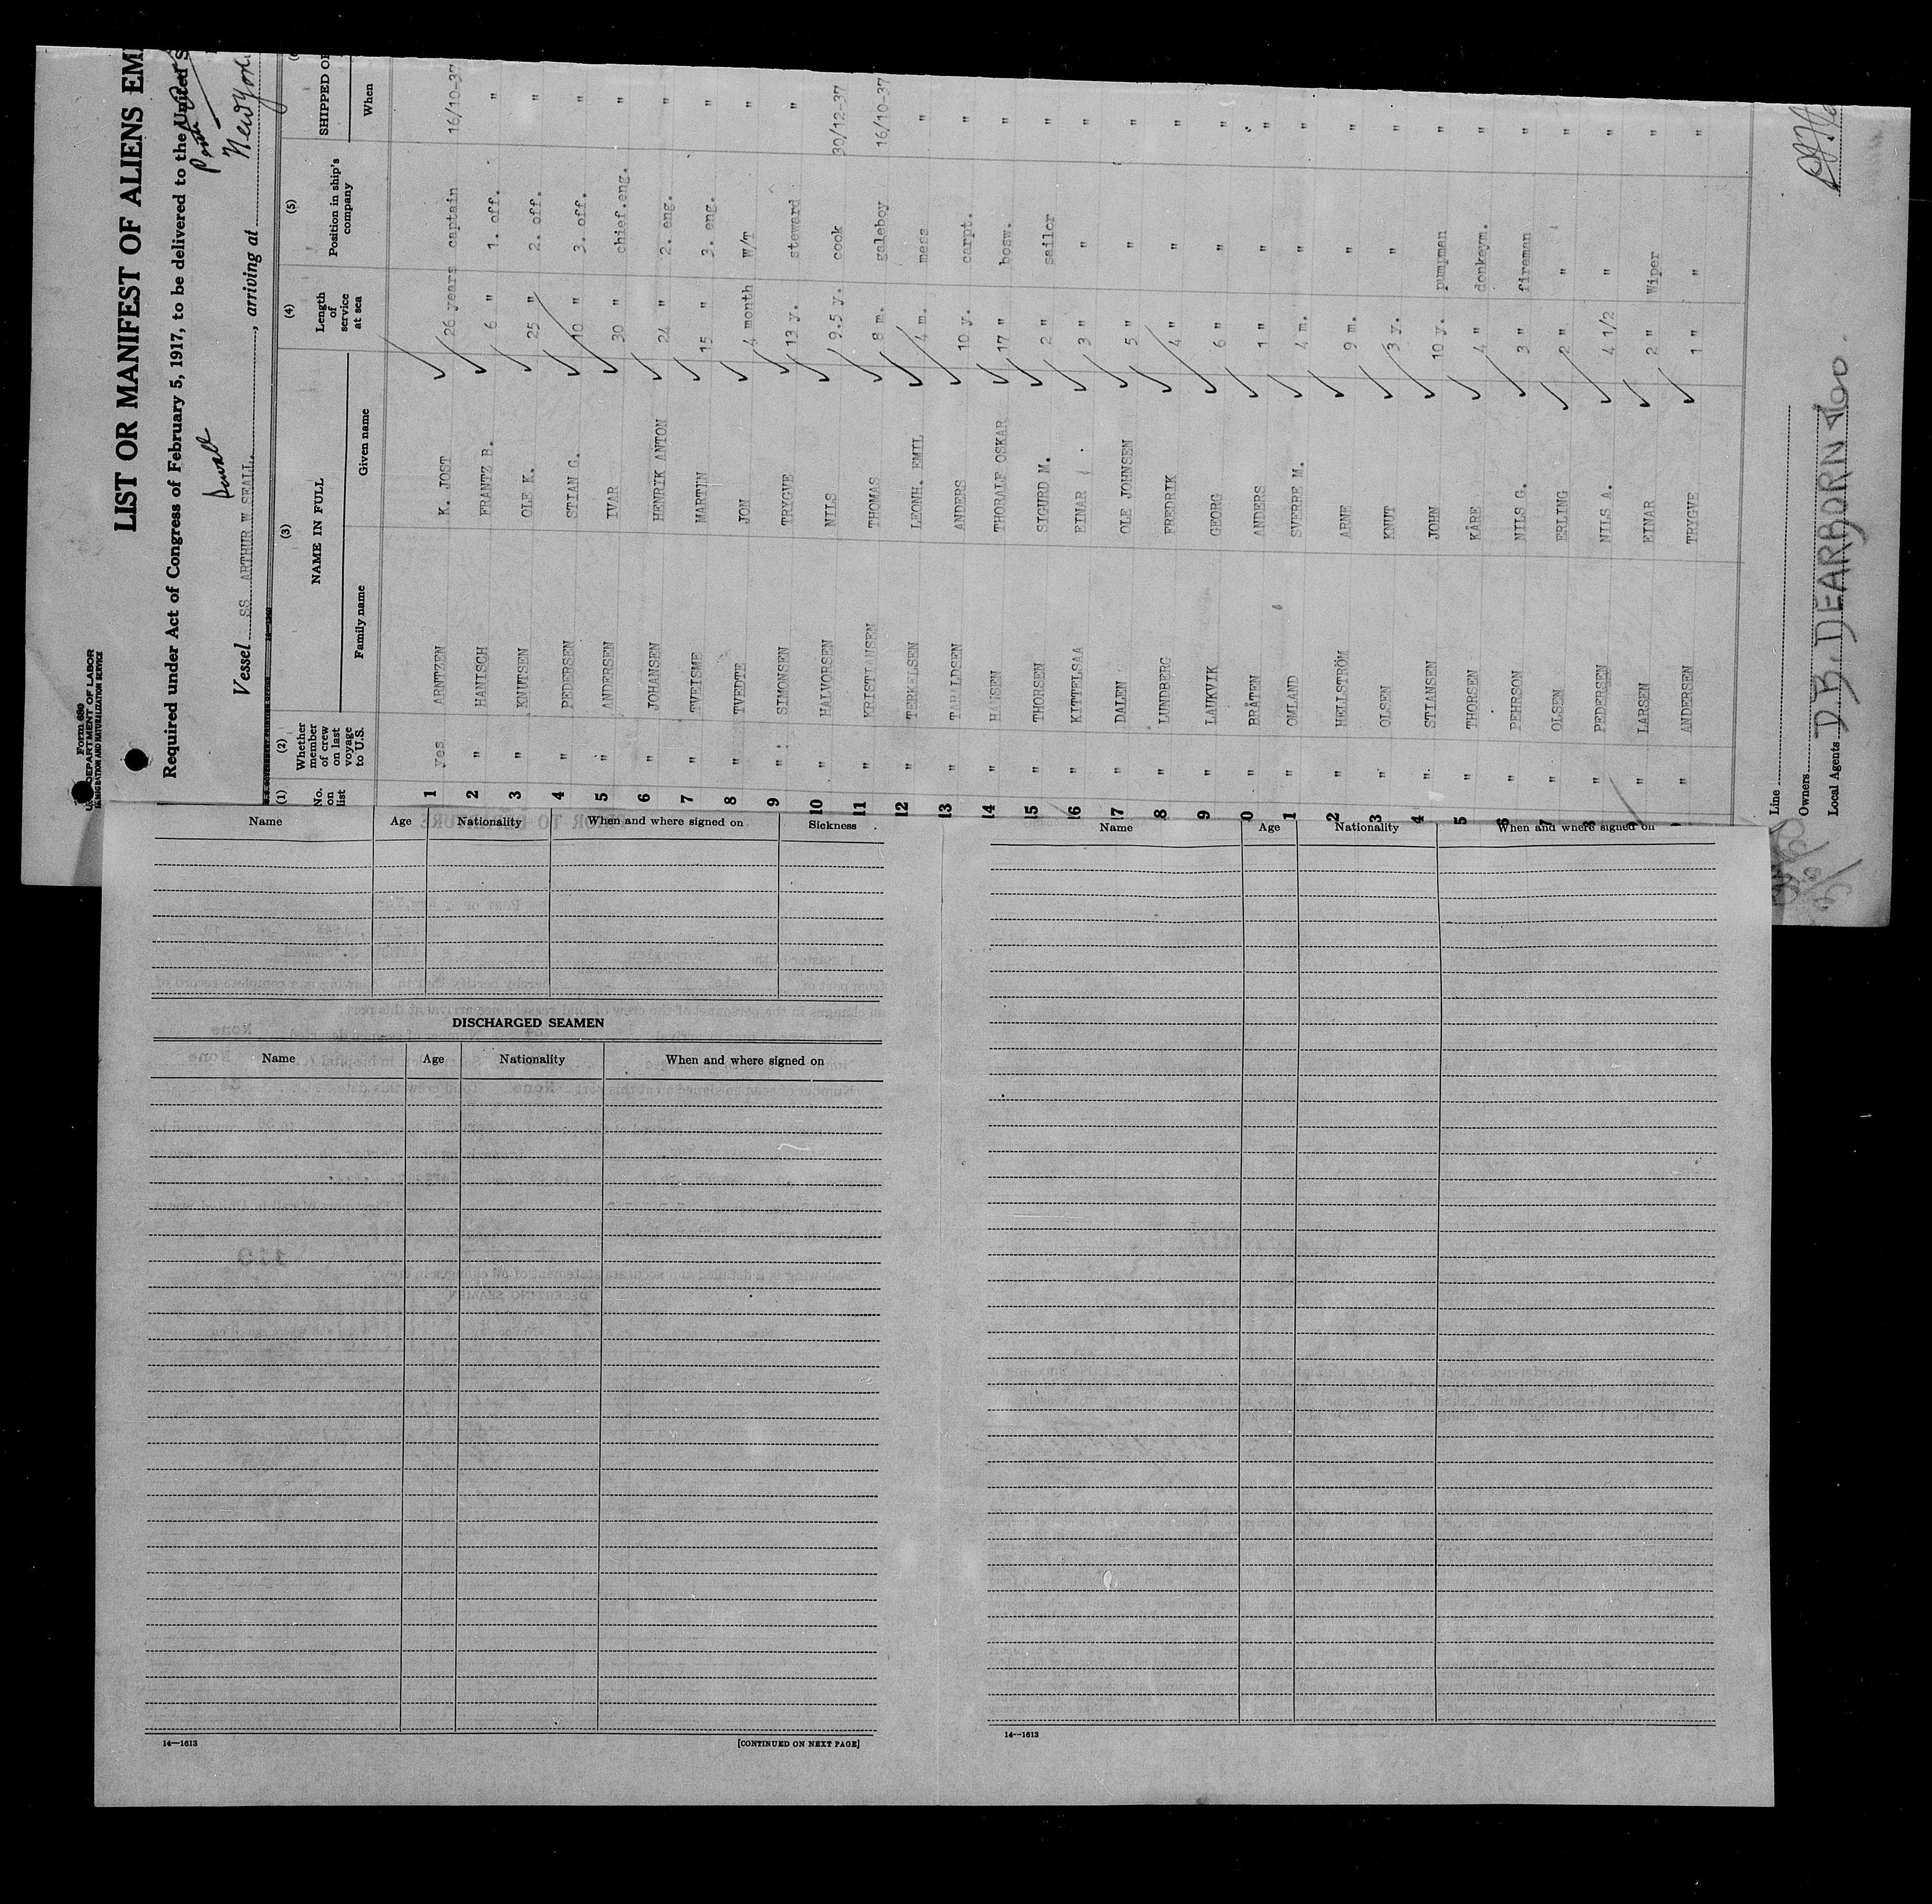 Form 680
U. S. DEPARTMENT OF LABOR
IMMIGRATION AND NATURALIZATION SERVICE
LIST OR MANIFEST OF ALIENS EM
Required under Act of Congress of February 5, 1917, to be delivered to the United S
Sewall
Vessel SS ARTHUR W SEALL., arriving at New York
(1) (2) (3) (4) (5)
No. on list
Whether member of crew on last voyage to U.S.
NAME IN FULL
Family name Given name
Length of service at sea
Position in ship's company
SHIPPED O
When
1 yes ARNTZEN K. JOST 26 years captain 16/10-37
2 " HANISCH FRANTZ B. 6 " 1. off. "
3 " KNUTSEN OLE K. 25 " 2. off. "
4 " PEDERSEN STIAN G. 10 " 3. off. "
5 " ANDERSEN IVAR 30 " chief.eng. "
6 " JOHANSEN HENRIK ANTON 24 " 2. eng. "
7 " TVEISME MARTIN 15 " 3. eng. "
8 " TVEDTE JON 4 month W/T "
9 " SIMONSEN TRYGVE 13 y. steward "
10 " HALVORSEN NILS 9.5 y. cook 30/12-37
11 " KRISTIANSEN THOMAS 8 m. galeboy 16/10-37
12 " TERKELSEN LEONH. EMIL 4 m. mess "
13 " TARALDSEN ANDERS 10 y. carpt. "
14 " HANSEN THORALF OSKAR 17 " bosw. "
15 " THORSEN SIGURD M. 2 " sailor "
16 " KITTELSAA EINAR 3 " " "
17 " DALEN OLE JOHNSEN 5 " " "
8 " LUNDBERG FREDRIK 4 " " "
9 " LAUKVIK GEORG 6 " " "
0 " BRÅTEN ANDERS 1 " " "
1 " OMLAND SVERRE M. 4 m. " "
2 " HELLSTRÖM ARNE 9 m. " "
3 " OLSEN KNUT 3 y. " "
4 " STIANSEN JOHN 10 y. pumpman "
5 " THORSEN KÅRE 4 " donkeym. "
6 " PEHRSON NILS G. 3 " fireman "
7 " OLSEN ERLING 2 " " "
8 " PEDERSEN NILS A. 4 1/2 " "
" LARSEN EINAR 2 " Wiper "
" ANDERSEN TRYGVE 1 " " "
Line
Owners
Local Agents D.B. DEARBORN
Name Age Nationality When and where signed on Sickness
DISCHARGED SEAMEN
Name Age Nationality When and where signed on
14—1613
[CONTINUED ON NEXT PAGE]
Name Age Nationality When and where signed on
14—1613